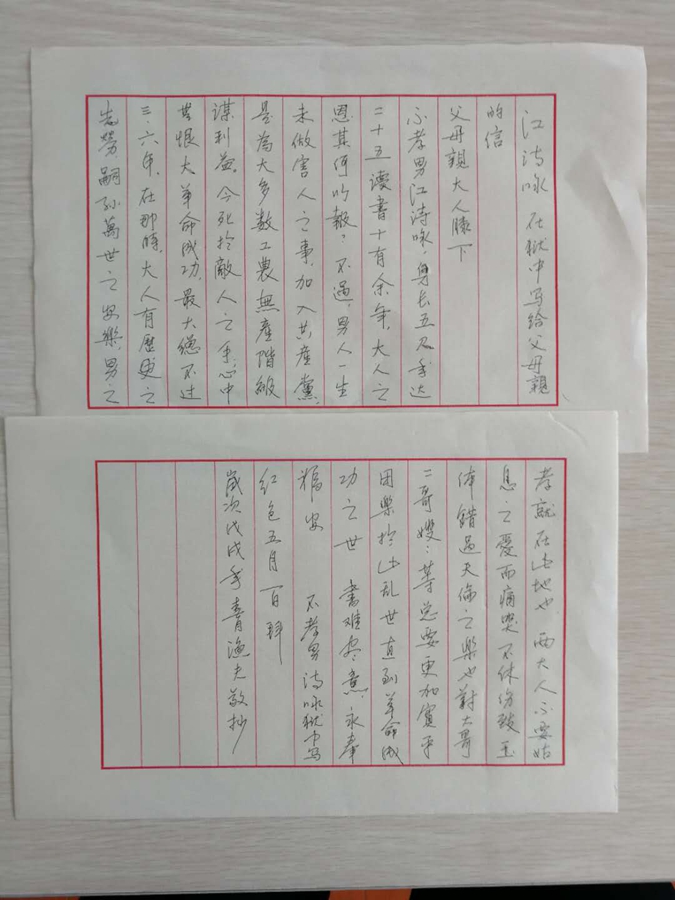 江诗咏 在狱中写给父母親
的信
父母親大人膝下
不孝男江诗咏，身长五尺年达
二十五读書十有余年，大人之
恩其何以報？不過，男人一生
未做害人之事，加入共産黨，
是為大多数工農無産階級
谋利益。今死於敵人之手，心中
無恨大革命成功，最大總不过
三·六年，在那時，大人有歷史之
光榮，嗣孫萬世之安樂，男之
孝就在此地也 两大人不要姑
息之愛而痛哭不休伤致玉
体錯過天倫之樂也對大哥
二哥嫂：等总要更加賓平
困樂於此乱世直到革命成
功之世 書难尽意，永奉
福安 不孝男诗咏狱中写
红色五月一日拜
歲次戊戌年 漁夫敬抄